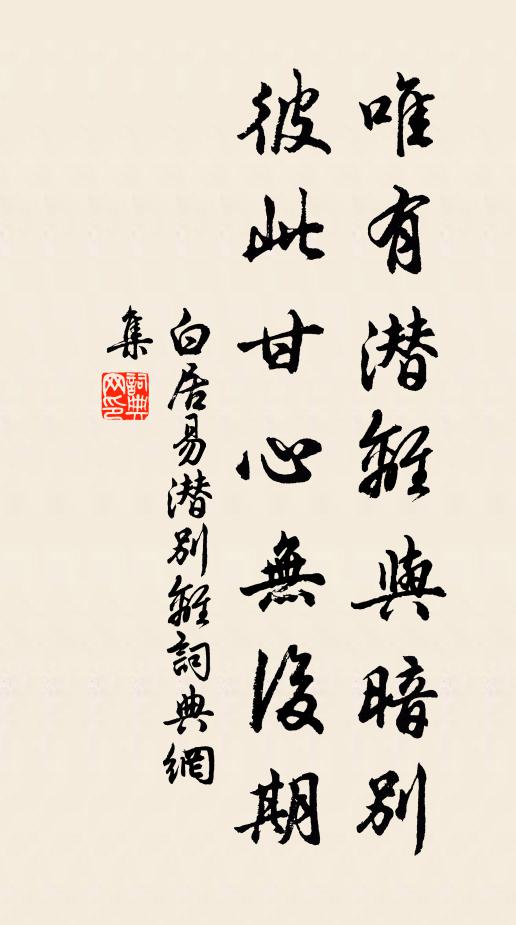 唯有潜離與暗別
彼此甘心無後期
白居易潜別離詞典網
集
詞典
网印